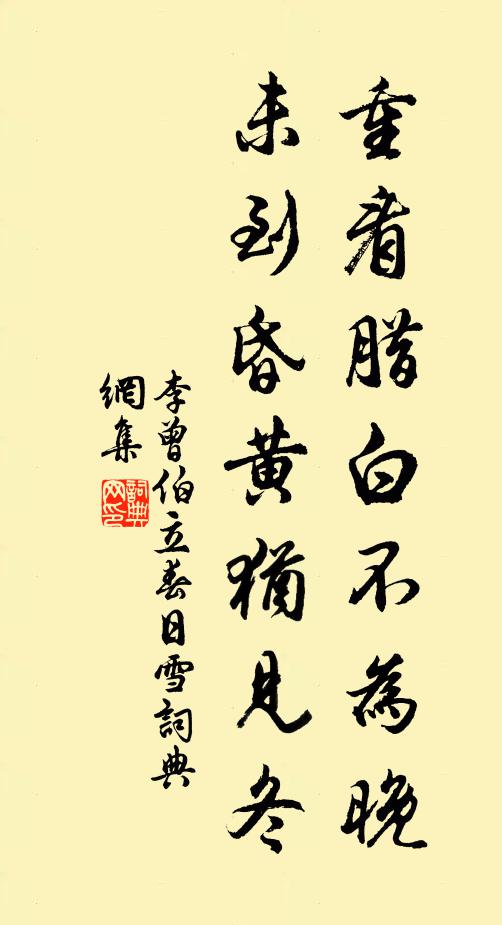 重看腊白不為晚
未到昏黄猶見冬
李曾伯立春日雪詞典
網集
詞典网印